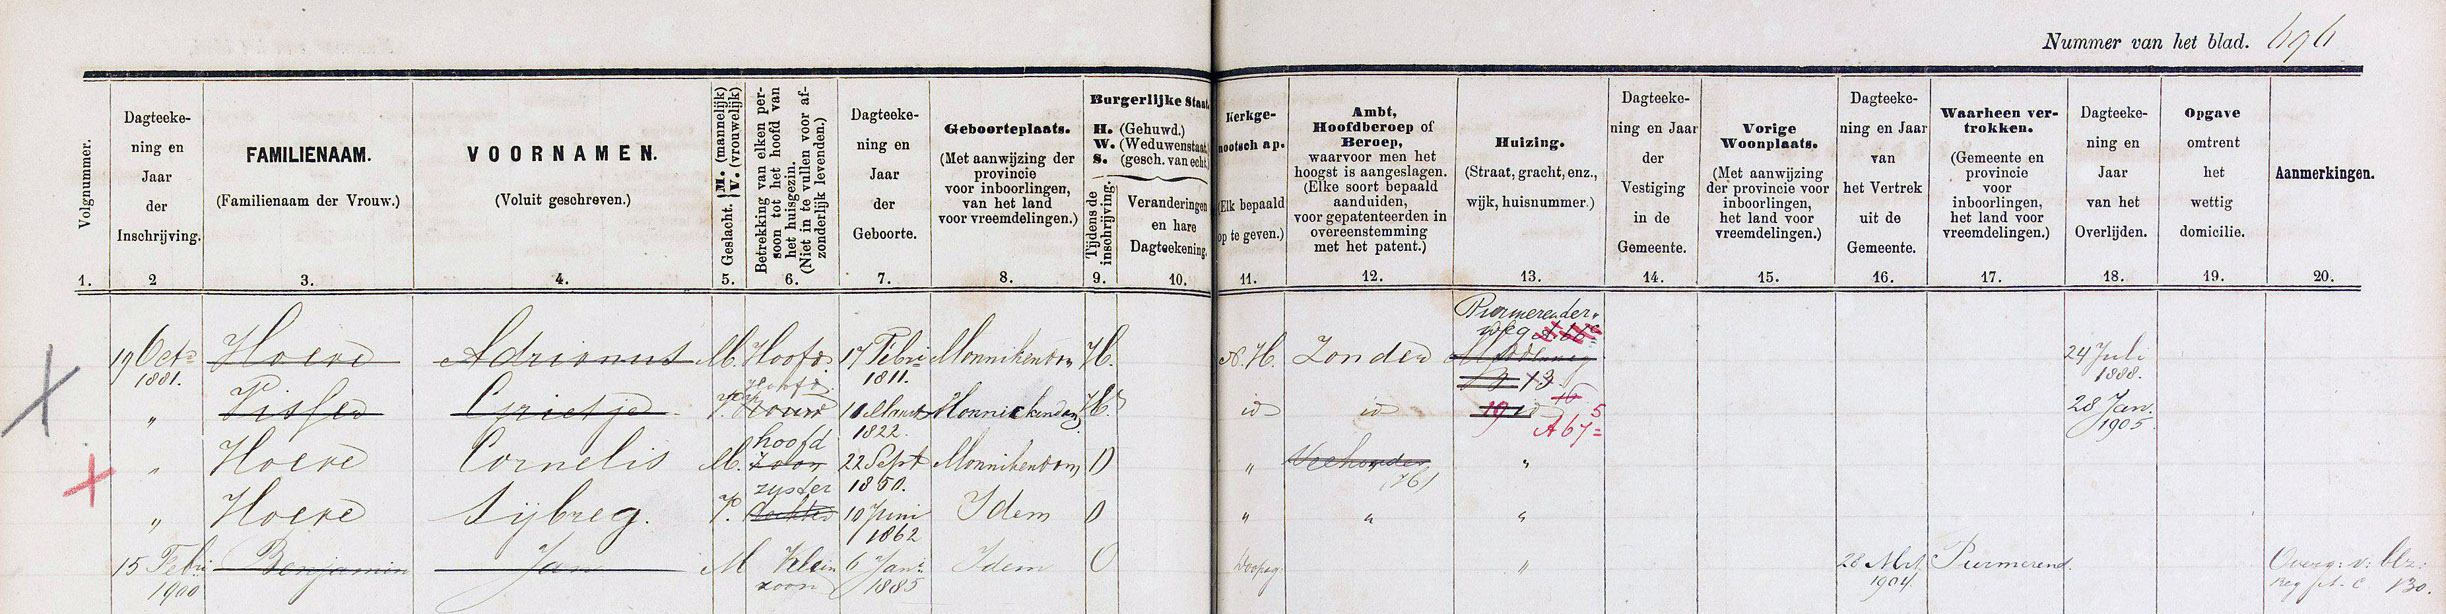 Nummer van het blad. 696
Volgnummer.
1.
Dagteeke-
ning en
Jaar
der
Inschrijving.
2
FAMILIENAAM.
(Familienaam der Vrouw.)
3.
VOORNAMEN.
(Voluit geschreven.)
4.
Geslacht. M. (mannelijk)
V. (vrouwelijk)
5.
Betrekking van elken per-
soon tot het hoofd van
het huisgezin.
(Niet in te vullen voor af-
zonderlijk levenden.)
6.
Dagteeke-
ning en
Jaar
der
Geboorte.
7.
Geboorteplaats.
(Met aanwijzing der
provincie
voor inboorlingen,
van het land
voor vreemdelingen.)
8.
Burgerlijke Staat.
H. (Gehuwd.)
W. (Weduwenstaat.)
S. (gesch. van echt.)
Tijdens de
inschrijving.
9.
Veranderingen
en hare
Dagteekening.
10.
Kerkge-
nootsch ap.
(Elk bepaald
op te geven.)
11.
Ambt,
Hoofdberoep of
Beroep,
waarvoor men het
hoogst is aangeslagen.
(Elke soort bepaald
aanduiden,
voor gepatenteerden in
overeenstemming
met het patent.)
12.
Huizing.
(Straat, gracht, enz.,
wijk, huisnummer.)
13.
Dagteeke-
ning en Jaar
der
Vestiging
in de
Gemeente.
14.
Vorige
Woonplaats.
(Met aanwijzing
der provincie voor
inboorlingen,
het land voor
vreemdelingen.)
15.
Dagteeke-
ning en Jaar
van
het Vertrek
uit de
Gemeente.
16.
Waarheen ver-
trokken.
(Gemeente en
provincie
voor
inboorlingen,
het land voor
vreemdelingen.)
17.
Dagteeke-
ning en
Jaar
van het
Overlijden.
18.
Opgave
omtrent
het
wettig
domicilie.
19.
Aanmerkingen.
20.
Purmerender-
weg
19 Oct. Hoeve Adrianus M. Hoofd 17 Febri Monnikendam H. N.H. Zonder 24 Juli
1881. 1811. 13 1888.
Hoofd
" Visser Grietje V. vrouw 10 Maart Monnickendam H. id id 19 id 16 5 28 Jan.
1822. A 67 1905
hoofd
" Hoeve Cornelis M. Zoon 22 Sept Monnikendam O " Veehouder "
1850. (H)
zuster
" Hoeve Sijbreg. V. dochter 10 Juni Idem O " " "
1862
15 Febri Benjamin Jan M Klein 6 Jan. Idem O Doopsg. " 28 Mrt. Purmerend. Overg: v: blz:
1900 zoon 1885 1904. 130.